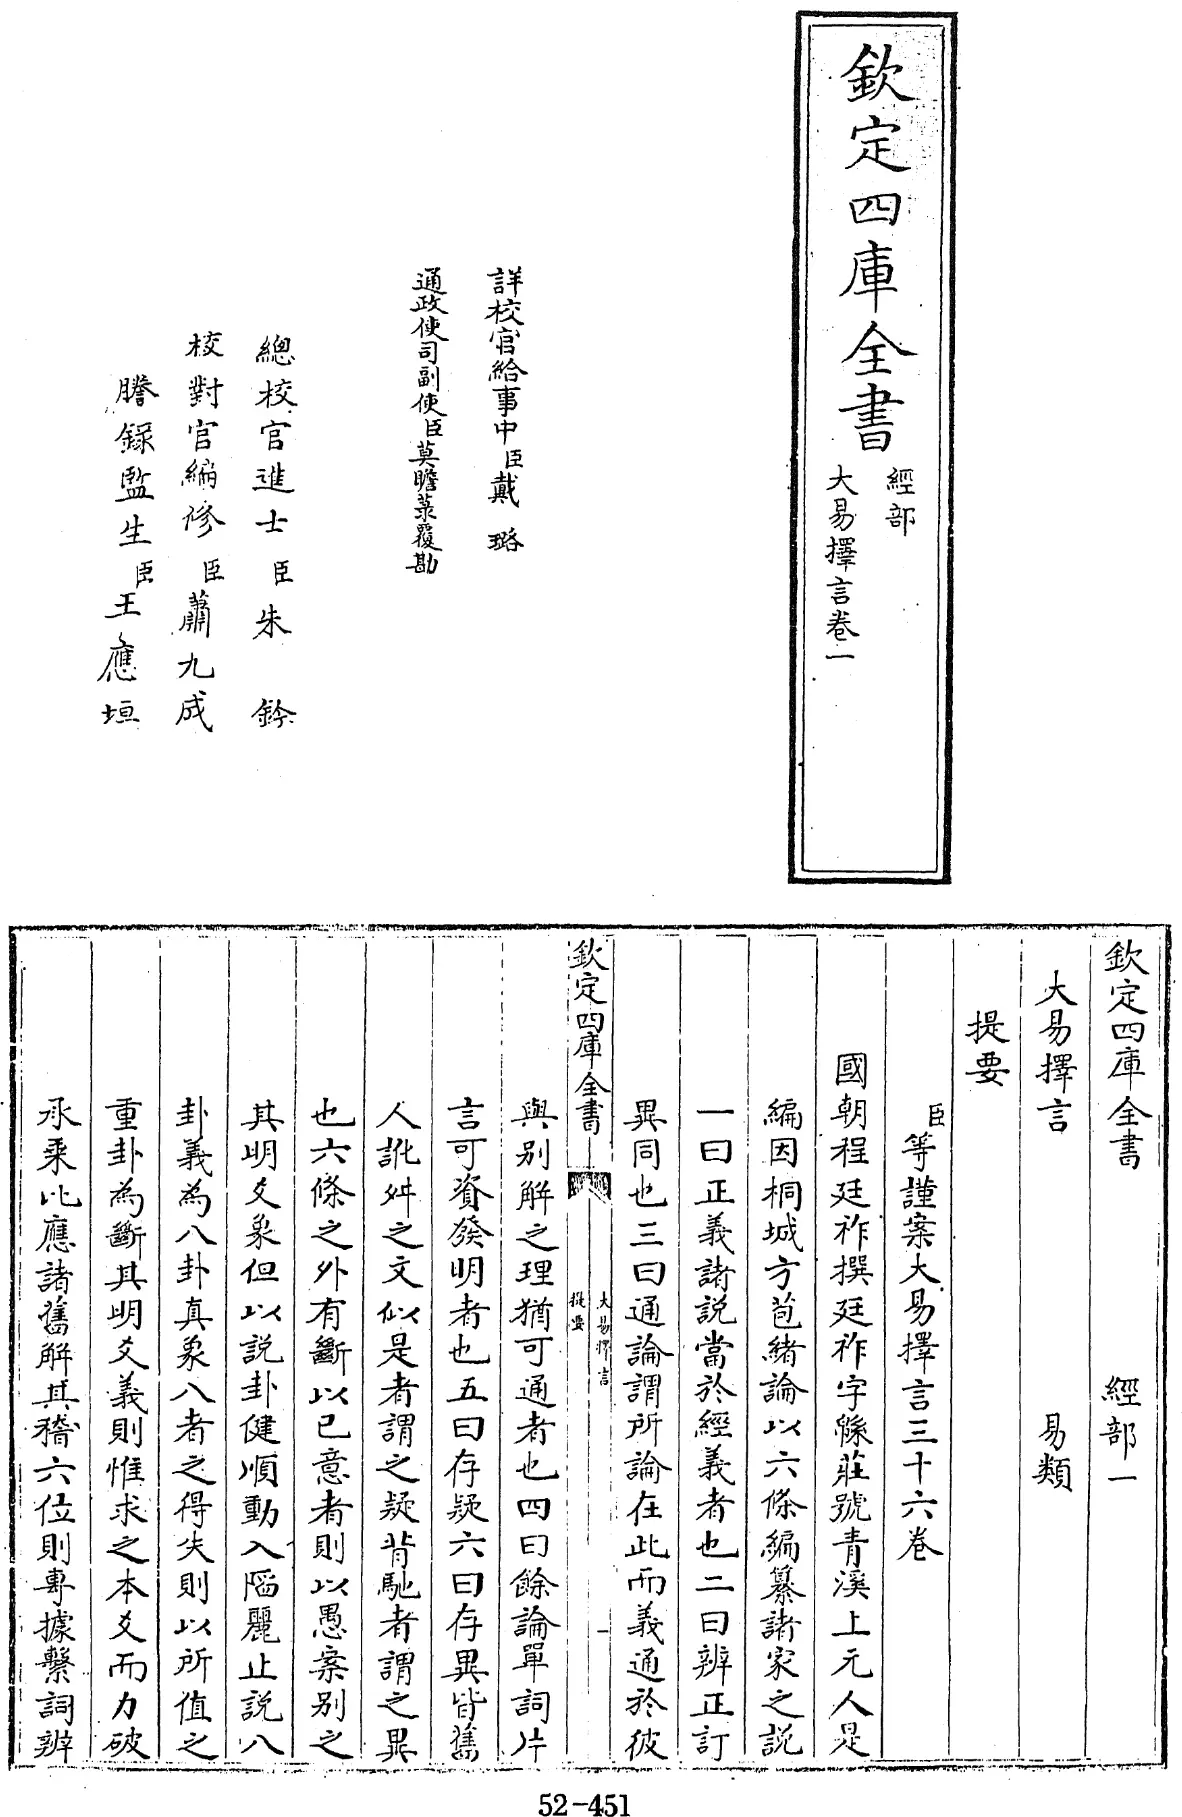 欽定四庫全書
經部
大易擇言卷一
詳校官給事中臣戴璐
通政使司副使臣莫瞻菉覆勘
總校官進士臣朱鈐
校對官編修臣蕭九成
謄錄監生臣王應垣
欽定四庫全書 經部一
大易擇言 易類
提要
臣等謹案大易擇言三十六卷
國朝程廷祚撰廷祚字緜莊號青溪上元人是
編因桐城方苞緒論以六條編纂諸家之説
一曰正義諸説當於經義者也二曰辨正訂
異同也三曰通論謂所論在此而義通於彼
欽定四庫全書
大易擇言
提要
一
與别解之理猶可通者也四曰餘論單詞片
言可資發明者也五曰存疑六曰存異皆舊
人訛舛之文似是者謂之疑背馳者謂之異
也六條之外有斷以已意者則以愚案别之
其明爻象但以説卦健順動入陷麗止説八
卦義為八卦真象八者之得失則以所值之
重卦為斷其明爻義則惟求之本爻而力破
承乘比應諸舊解其稽六位則專據繫詞辨
52-451